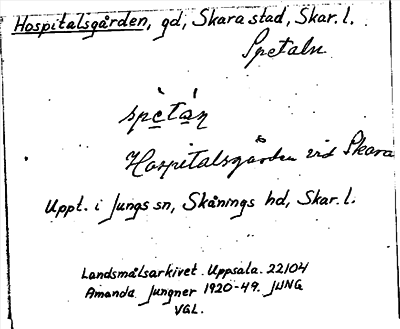 Hospitalsgården, gd, Skara stad, Skar. l.
Spetaln
spètá̀n
Hospitalsgården vid Skara
Uppt. i Jungs sn, Skånings hd, Skar. l.
Landsmålsarkivet Uppsala. 22104
Amanda Jungner 1920-49. JUNG
VGL.